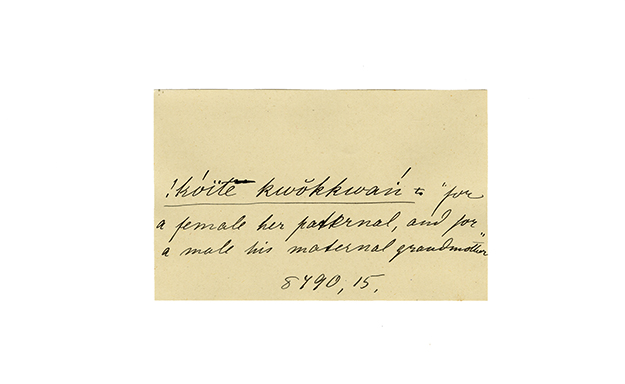 !kóïte kwŏkkwań to "for
a female her paternal, and for
a male his maternal grandmother"
8490, 15.